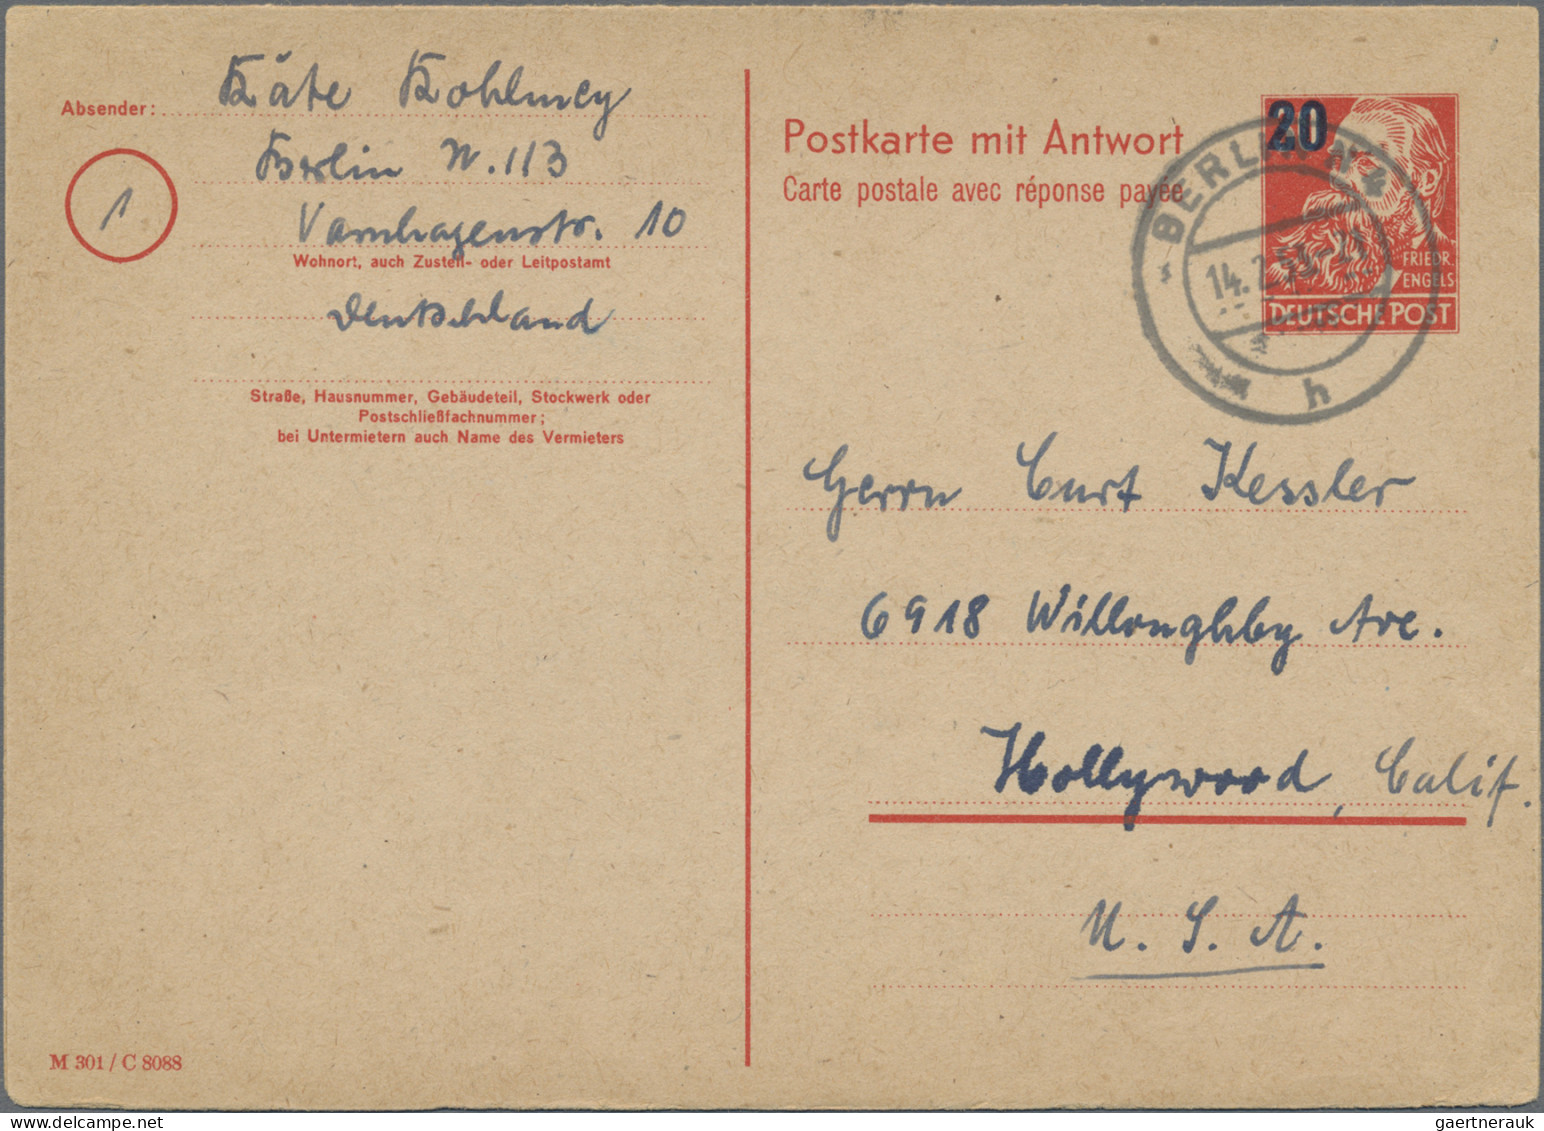 Absender: Käte Kohlmey
Berlin N. 113
Varnhagenstr. 10
Wohnort, auch Zustell- oder Leitpostamt
Deutschland
Straße, Hausnummer, Gebäudeteil, Stockwerk oder
Postschließfachnummer;
bei Untermietern auch Name des Vermieters
1
M 301 / C 8088
Postkarte mit Antwort
Carte postale avec réponse payée
20
FRIEDR.
ENGELS
DEUTSCHE POST
BERLIN N 4
14.2.53-21
h
Herrn Curt Kessler
6918 Willoughby Ave.
Hollywood, Calif.
U. S. A.
gaertnerauk @ delcampe.net